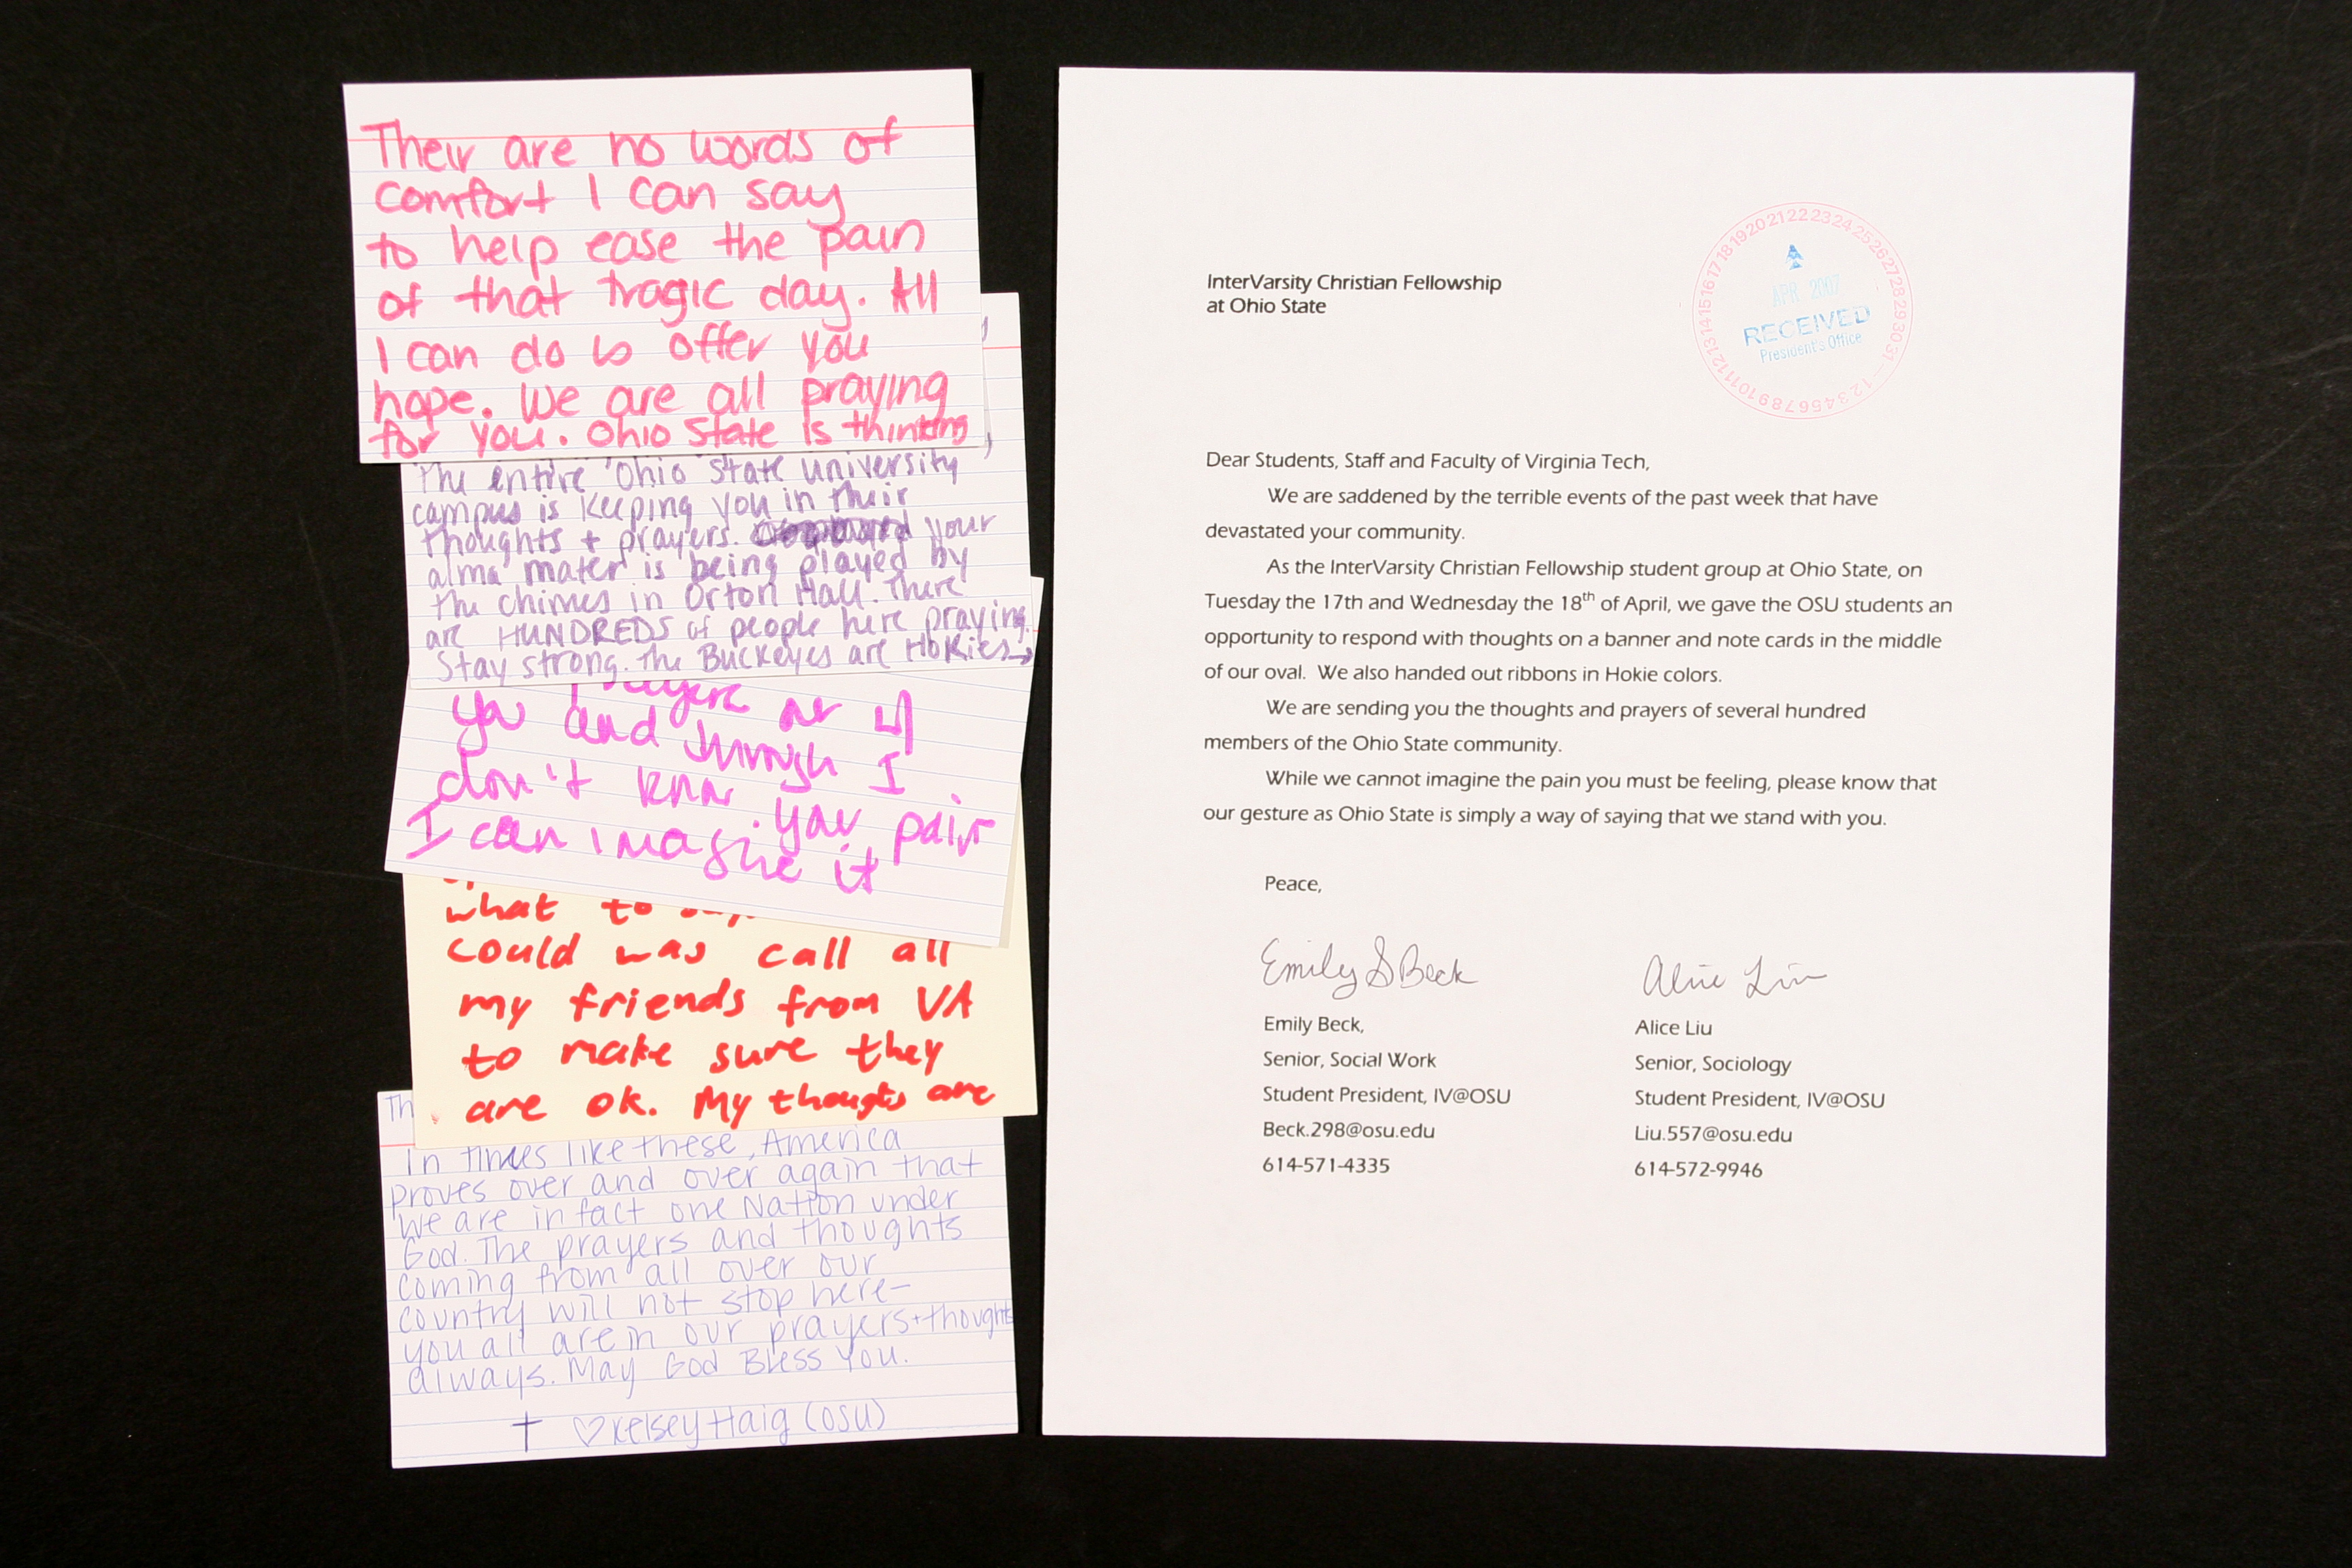 Their are no words of
comfort I can say
to help ease the pain
of that tragic day. All
I can do is offer you
hope. We are all praying
for you. Ohio State is thinking
The entire Ohio State University
campus is keeping you in their
thoughts + prayers. your
alma mater is being played by
the chimes in Orton Hall. There
are HUNDREDS of people here praying.
Stay strong. The Buckeyes are Hokies→
you and through I
don't know your pain
I can imagine it
what to
could was call all
my friends from VA
to make sure they
are ok. My thoughts are
Th
In times like these, America
proves over and over again that
we are in fact one Nation under
God. The prayers and thoughts
coming from all over our
country will not stop here-
you all are in our prayers+thoughts
always. May God Bless You.
† ♡Kelsey Haig (OSU)
InterVarsity Christian Fellowship
at Ohio State
1 2 3 4 5 6 7 8 9 10 11 12 13 14 15 16 17 18 19 20 21 22 23 24 25 26 27 28 29 30 31
APR 2007
RECEIVED
President's Office
Dear Students, Staff and Faculty of Virginia Tech,
We are saddened by the terrible events of the past week that have
devastated your community.
As the InterVarsity Christian Fellowship student group at Ohio State, on
Tuesday the 17th and Wednesday the 18th of April, we gave the OSU students an
opportunity to respond with thoughts on a banner and note cards in the middle
of our oval. We also handed out ribbons in Hokie colors.
We are sending you the thoughts and prayers of several hundred
members of the Ohio State community.
While we cannot imagine the pain you must be feeling, please know that
our gesture as Ohio State is simply a way of saying that we stand with you.
Peace,
Emily S Beck
Alice Liu
Emily Beck,
Senior, Social Work
Student President, IV@OSU
Beck.298@osu.edu
614-571-4335
Alice Liu
Senior, Sociology
Student President, IV@OSU
Liu.557@osu.edu
614-572-9946